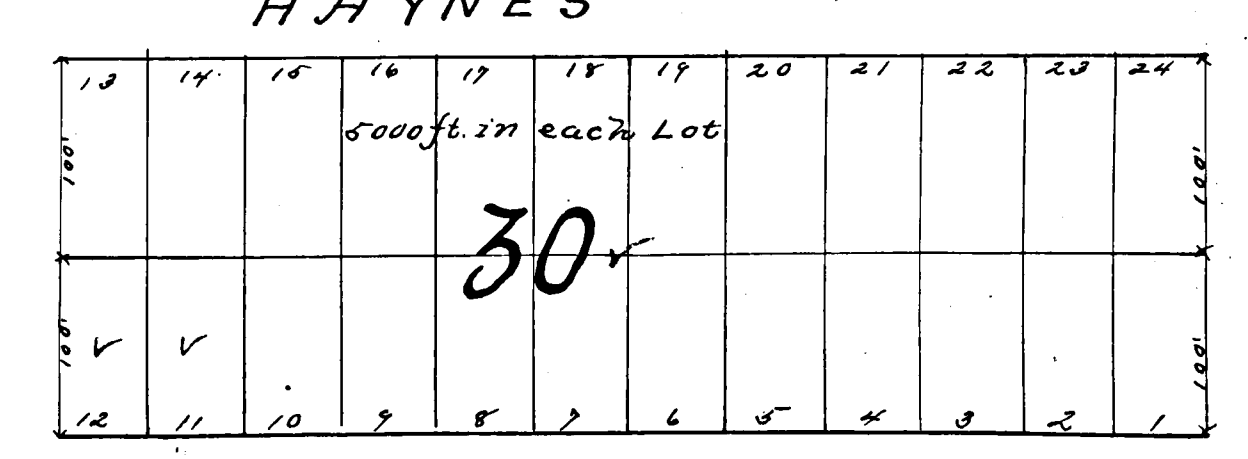 HAYNES
13 14 15 16 17 18 19 20 21 22 23 24
5000 ft. in each Lot
100' 100'
30
100' 100'
12 11 10 9 8 7 6 5 4 3 2 1